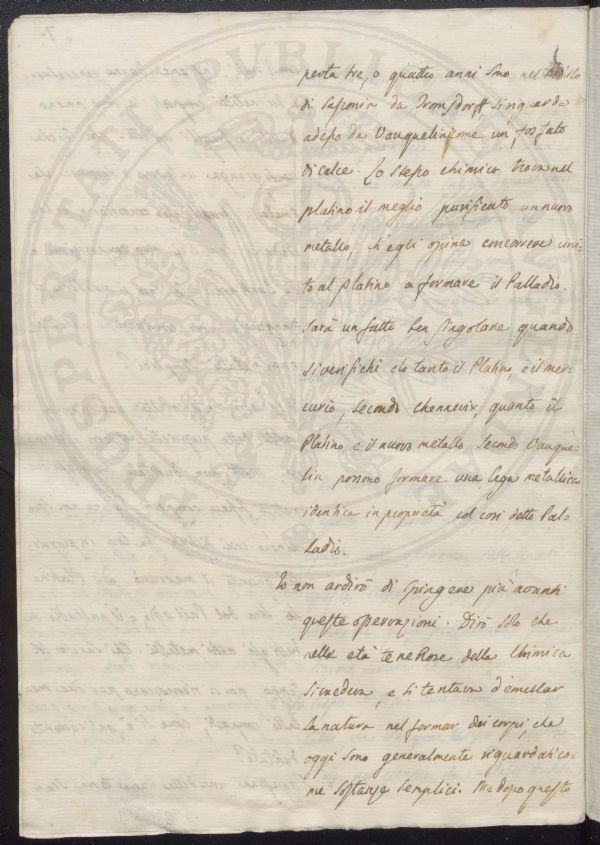 perta tre, o quattro anni sono nel Berillo
di Sassonia da Tromsdorff, si riguarda
adesso da Vauquelin come un fosfato
di calce. Lo stesso chimico trova nel
platino il meglio purificato un nuovo
metallo, ch'egli opina concorrere uni-
to al platino a formare il Palladio.
Sarà un fatto ben singolare quando
si verifichi che tanto il Platino, e il mer-
curio, secondo Chennevix, quanto il
Platino e il nuovo metallo secondo Vauque-
lin possono formare una lega metallica
identica in proprietà col così detto Pal-
ladio.
Io non ardirò di spingere più avanti
queste osservazioni. Dirò solo che
nelle età tenebrose della Chimica
si credeva, e si tentava d'emular
la natura nel formar dei corpi, che
oggi sono generalmente riguardati co-
me sostanze semplici. Ma dopo questo